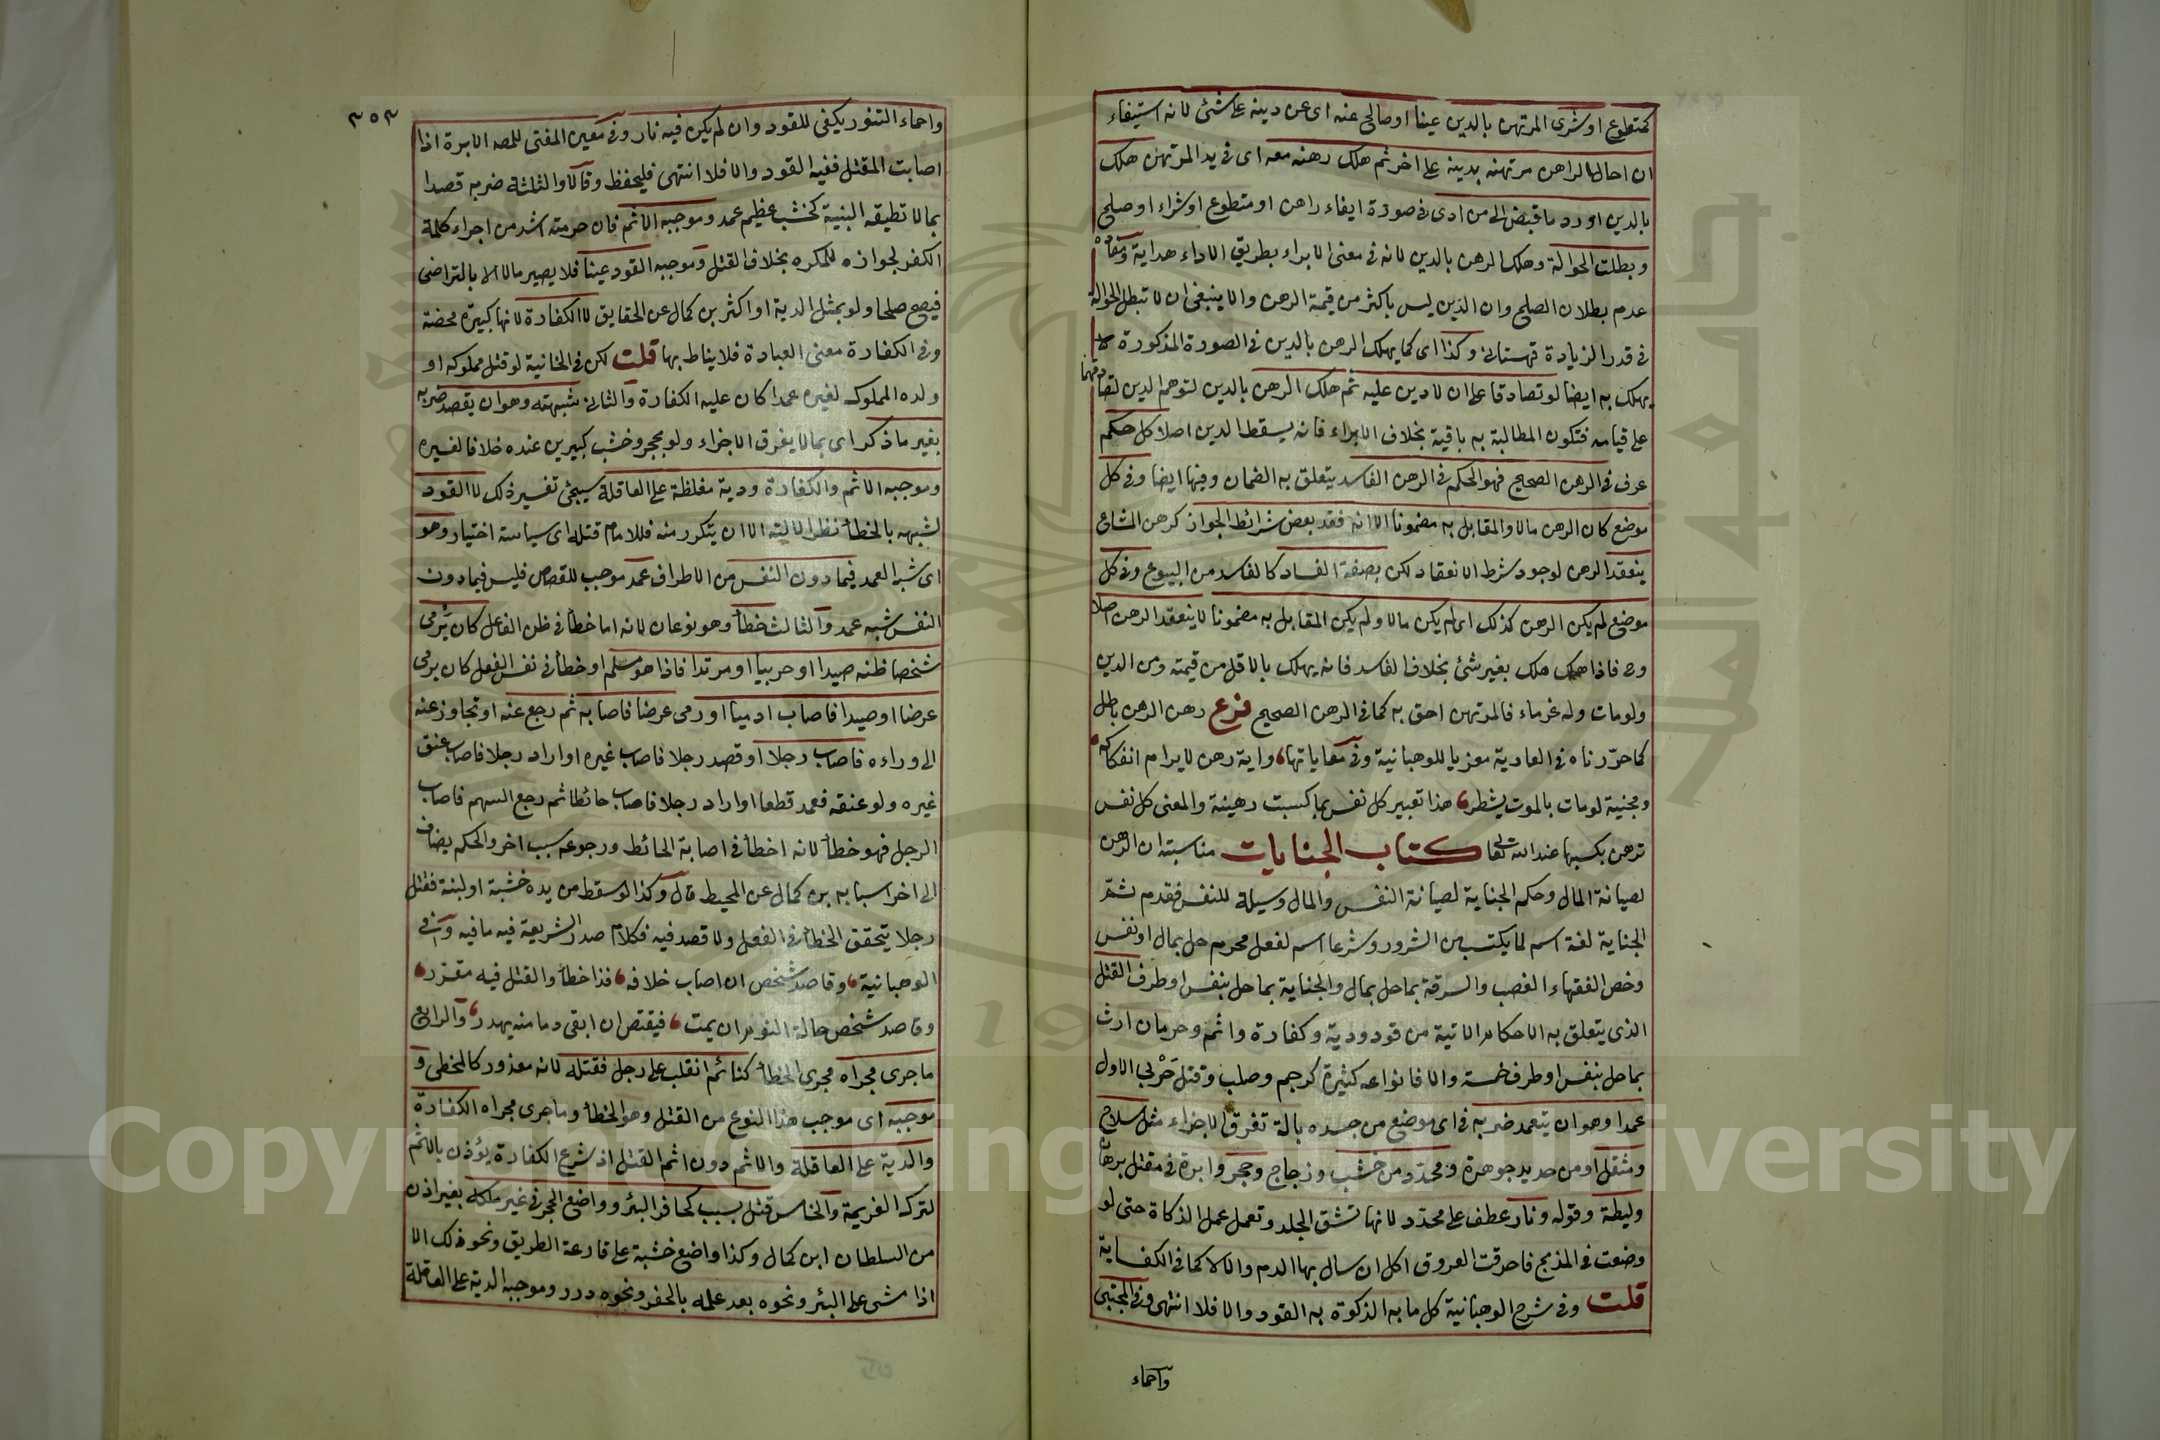 كمتطوع او شرى المرتهن بالدين عينا او صالح عنه اى عن دينه على شئ لانه استيفاء
ان احال الراهن مرتهنه بدينه على اخر ثم هلك رهنه معه اى فى يد المرتهن هلك
بالدين او رد ما قبض الى من ادى فى صورة ايفاء راهن او متطوع او شراء او صلح
وبطلت الحوالة وهلك الرهن بالدين لانه فى معنى الابراء بطريق الاداء هداية ومفاده
عدم بطلان الصلح وان الدين ليس باكثر من قيمة الرهن والا ينبغى ان لا تبطل الحوالة
فى قدر الزيادة قهستانى وكذا اى كما يهلك الرهن بالدين فى الصورة المذكورة
يهلك به ايضا لو تصادقا على ان لا دين عليه ثم هلك الرهن بالدين لتوهم الدين لتصادقهما
على قيامه فتكون المطالبة به باقية بخلاف الابراء فانه يسقط الدين اصلا كل حكم
عرف فى الرهن الصحيح فهو الحكم فى الرهن الفاسد يتعلق به الضمان وفيها ايضا وفى كل
موضع كان الرهن مالا والمقابل به مضمونا الا انه فقد بعض شرائط الجواز كرهن المشاع
ينعقد الرهن لوجود شرط الانعقاد لكن بصفة الفساد كالفاسد من البيوع وفى كل
موضع لم يكن الرهن كذلك اى لم يكن مالا ولم يكن المقابل به مضمونا لا ينعقد الرهن اصلا
وح فاذا هلك هلك بغير شئ بخلاف الفاسد فانه يهلك بالاقل من قيمته ومن الدين
ولو مات وله غرماء فالمرتهن احق به كما فى الرهن الصحيح فرع رهن الرهن باطل
كما حررناه فى العارية معزيا للوهبانية وفى معاياتها، واية رهن لا يرام انفكاكه،
ومجنية لو مات بالموت يشطر، هذا تعبير كل نفس بما كسبت رهينة والمعنى كل نفس
ترهن بكسبها عند الله تعالى كتاب الجنايات مناسبته ان الرهن
لصيانة المال وحكم الجناية لصيانة النفس والمال وسيلة للنفس فقدم ثم
الجناية لغة اسم لما يكتسب من الشرور وشرعا اسم لفعل محرم حل بمال او نفس
وخص الفقهاء الغصب والسرقة بما حل بمال والجناية بما حل بنفس او طرف القتل
الذى يتعلق به الاحكام الاتية من قود ودية وكفارة واثم وحرمان ارث
بما حل بنفس او طرف خمسة والا فانواعه كثيرة كرجم وصلب وقتل حربى الاول
عمدا وهو ان يتعمد ضربه فى اى موضع من جسده بالة تفرق الاجزاء مثل سلاح
ومثقل او من حديد جوهرة ومحدد من خشب وزجاج وحجر وابرة فى مقتل برهان
وليطة وقوله ونار عطف على محدد لانها تشق الجلد وتعمل عمل الذكاة حتى لو
وضعت فى المذبح فاحرقت العروق اكل ان سال بها الدم والا لا كما فى الكفاية
قلت وفى شرح الوهبانية كل ما به الذكوة به القود والا فلا انتهى وفى المجتبى
واحماء
٣٥٣
واحماء التنور يكفى للقود وان لم يكن فيه نار وفى معين المفتى للمص الابرة اذا
اصابت المقتل ففيه القود والا فلا انتهى فليحفظ وقالا والثلثة ضربه قصدا
بما لا تطيقه البنية كخشب عظيم عمد وموجبه الاثم فان حرمته اشد من اجراء كلمة
الكفر لجوازه للمكره بخلاف القتل وموجبه القود عينا فلا يصير مالا الا بالتراضى
فيصح صلحا ولو بمثل الدية او اكثر بن كمال عن الحقايق لا الكفارة لانها كبيرة محضة
وفى الكفارة معنى العبادة فلا يناط بها قلت لكن فى الخانية لو قتل مملوكه او
ولده المملوك لغيره عمدا كان عليه الكفارة والثانى شبهته وهو ان يقصد ضربه
بغير ما ذكر اى بما لا يفرق الاجزاء ولو بحجر وخشب كبيرين عنده خلافا لغيره
وموجبه الاثم والكفارة ودية مغلظة على العاقلة سيجئ تفسير ذلك لا القود
لشبهه بالخطأ نظرا لالته الا ان يتكرر منه فللامام قتله اى سياسة اختيار وهو
اى شبه العمد فيما دون النفس من الاطراف عمد موجب للقصاص فليس فيما دون
النفس شبه عمد والثالث خطأ وهو نوعان لانه اما خطأ فى ظن الفاعل كان يرمى
شخصا ظنه صيدا او حربيا او مرتدا فاذا هو مسلم او خطأ فى نفس الفعل كان يرمى
عرضا او صيدا فاصاب ادميا او رمى عرضا فاصابه ثم رجع عنه او تجاوز عنه
الى وراءه فاصاب رجلا او قصد رجلا فاصاب غيره او اراد رجلا فاصاب عنق
غيره ولو عنقه فعمد قطعا او اراد رجلا فاصاب حائطا ثم رجع السهم فاصاب
الرجل فهو خطأ لانه اخطأ فى اصابة الحائط ورجوعه سبب اخر والحكم يضاف
الى اخر اسبابه بن كمال عن المحيط قال وكذا لو سقط من يده خشبة او لبنة فقتل
رجلا يتحقق الخطأ فى الفعل ولا قصد فيه فكلام صدر الشريعة فيه ما فيه وفى
الوهبانية، وقاصد شخص ان اصاب خلافه، فذا خطأ والقتل فيه مقرر،
وقاصد شخص حالة النوم ان يمت، فيقتص ان ابقى دما منه يهدر، والرابع
ما جرى مجراه مجرى الخطأ كنائم انقلب على رجل فقتله لانه معذور كالمخطى و
موجبه اى موجب هذا النوع من القتل وهو الخطأ وما جرى مجراه الكفارة
والدية على العاقلة والاثم دون اثم القتل اذ شرع الكفارة يؤذن بالاثم
لترك العزيمة والخامس قتل بسبب كحافر البئر وواضع الحجر فى غير ملكه بغير اذن
من السلطان ابن كمال وكذا واضع خشبة على قارعة الطريق ونحو ذلك الا
اذا مشى على البئر ونحوه بعد علمه بالحفر ونحوه درر وموجبه الدية على العاقلة
Copyright © King Saud University